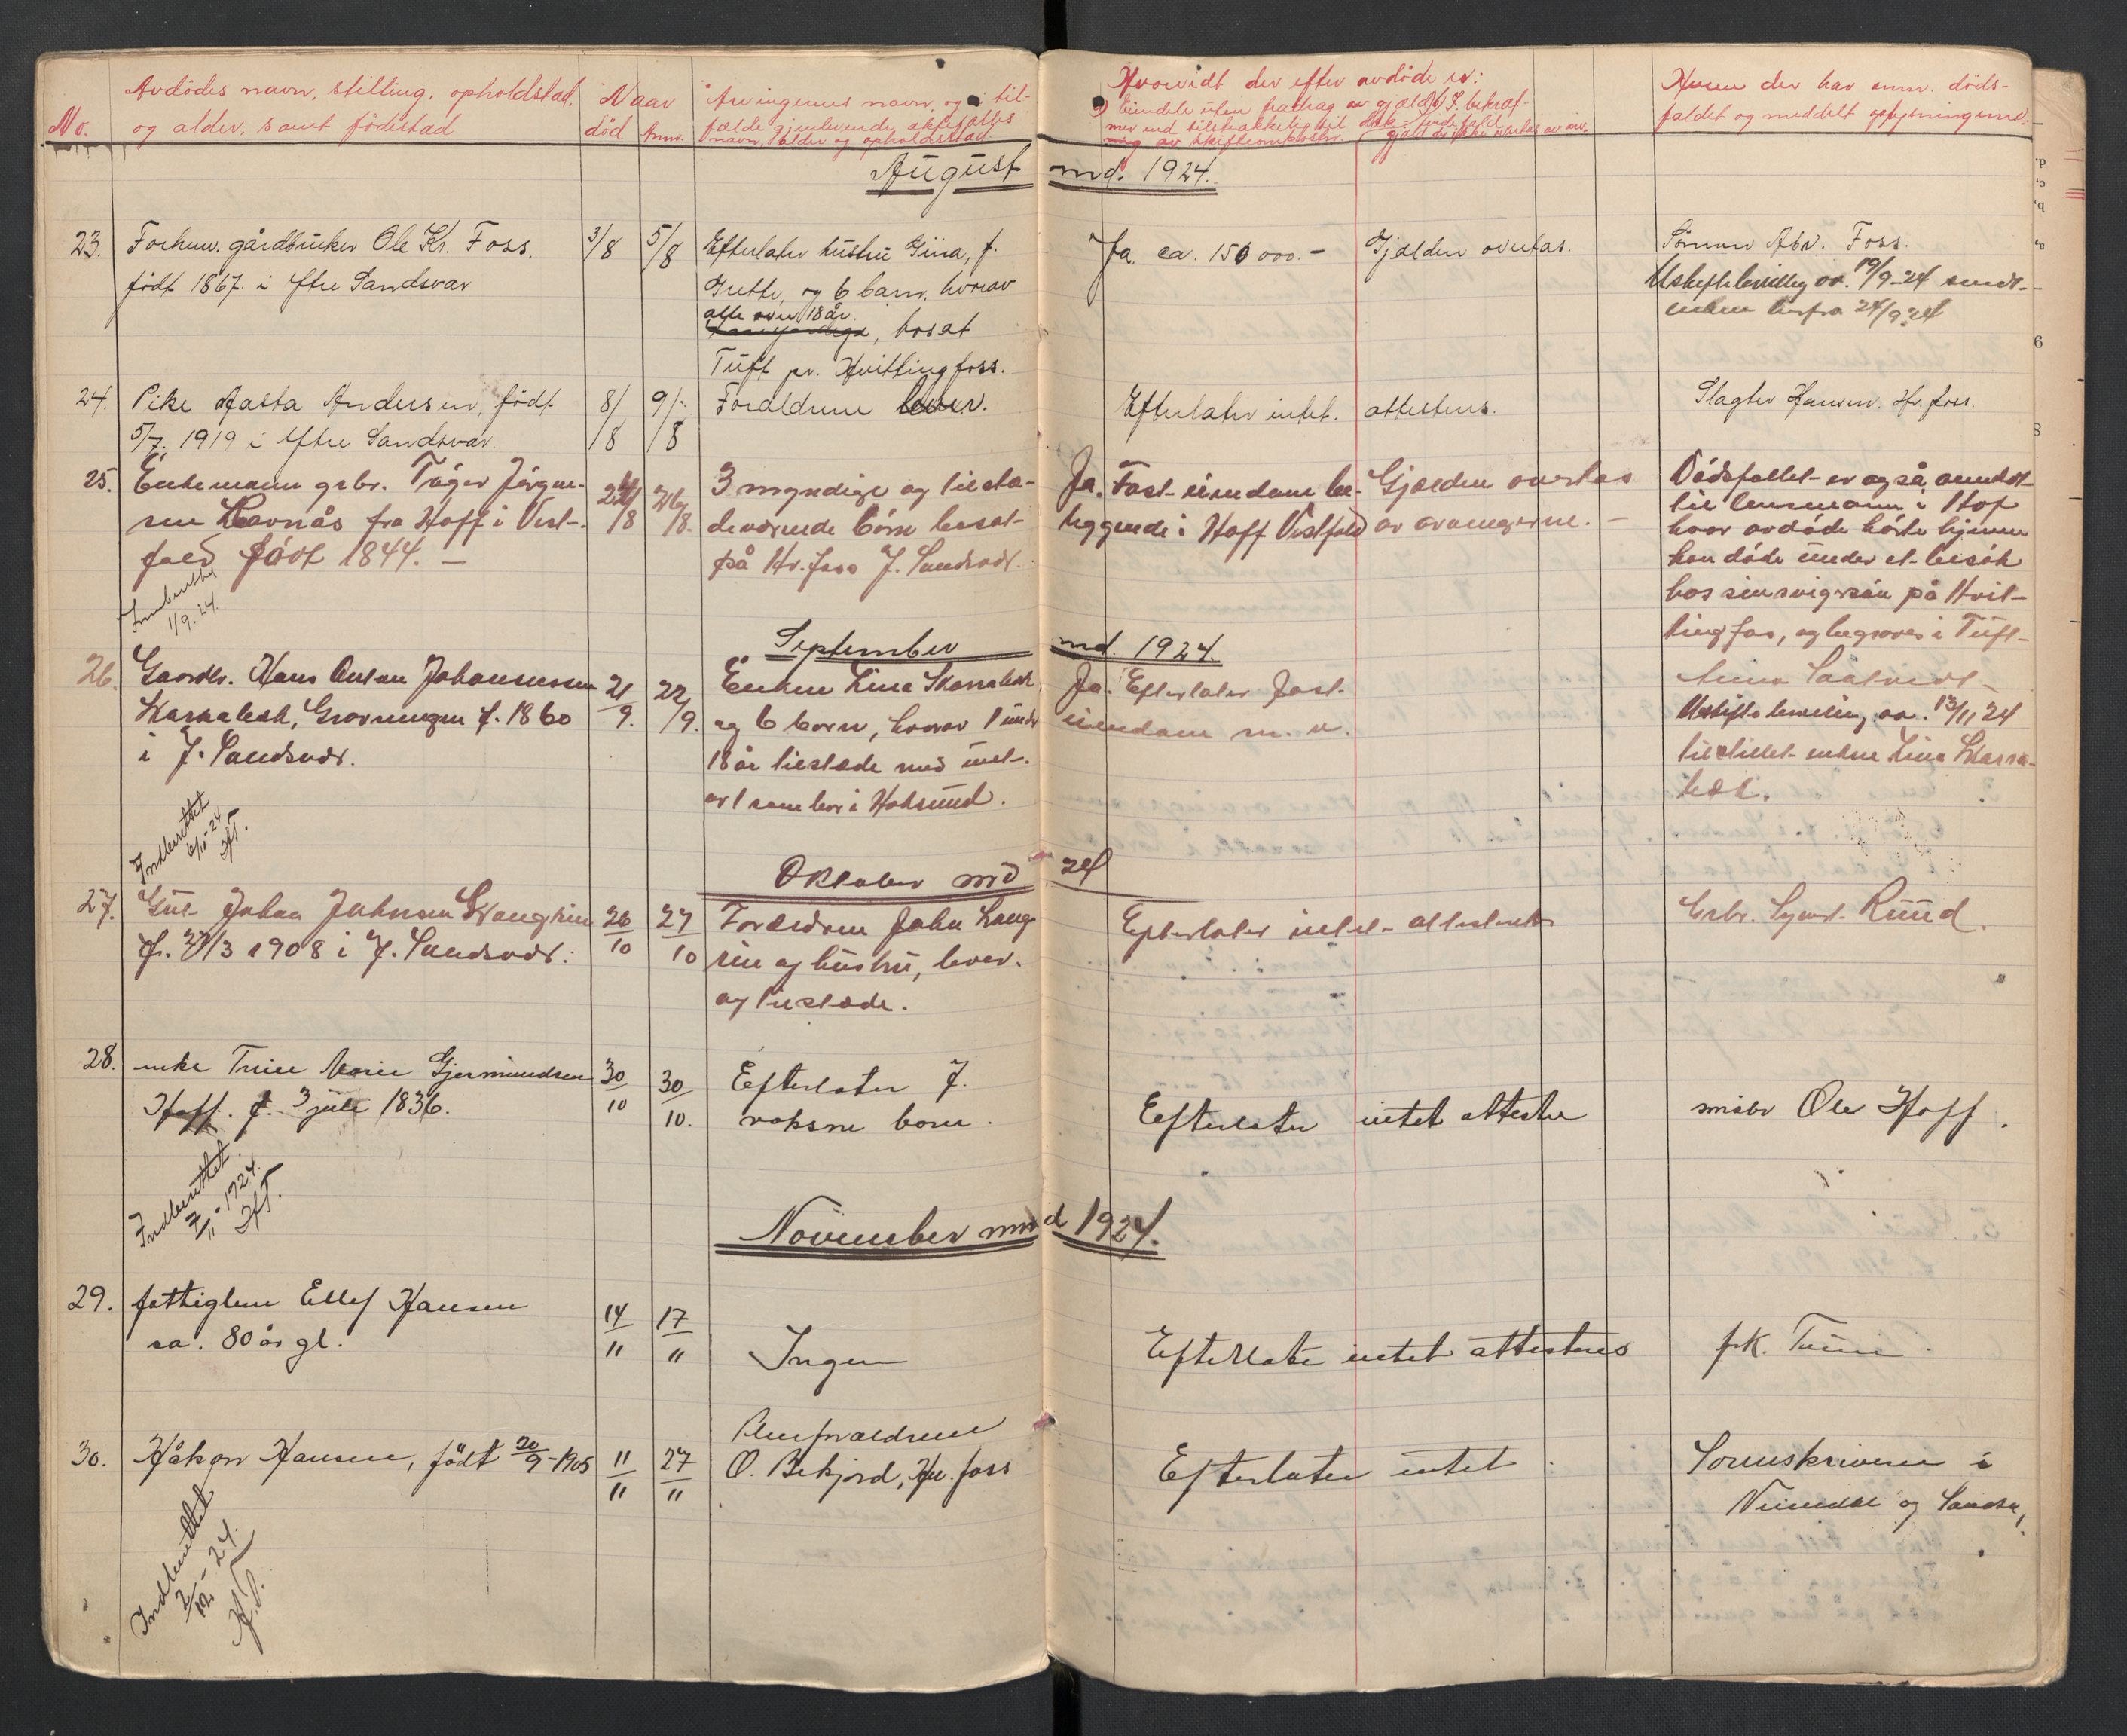 No.
Avdödes navn, stilling, opholdstad,
og alder, samt födestad
Naar
död
Anm.
Arvingernes navn, og i til-
fælde gjenlevende ektefælles
navn, alder og opholdsstad
Hvorvidt der efter avdöde er:
a) Eiendele uten fradrag av gjæld
mer end tilstrækkelig til
av skifteomkostn.
b) S. bekræf-
gjæld
Hvem der har anm. döds-
faldet og meddelt oplysningene.
August md. 1924.
23.
Forhenv. gårdbruker Ole Kr. Foss.
født 1867. i Ytre Sandsvær
3/8
5/8
Efterlater hustru Gina, f.
og 6 barn, hvorav
alle over 18 år.
, bosat
Tuft pr. Hvittingfoss.
Ja. ca. 150 000.-
Gjælden overtas.
Sönnen Abr. Foss.
Uskiftebevilling av 19/9-24 sendt
enken herfra 24/9.24
24.
Pike Aasta Andersen, født
5/7. 1919 i Ytre Sandsvær
8/8
9/8
Forældrene lever.
Efterlater intet. attesteres.
Slagter Hansen. Hv. foss.
25.
Enkemann grbr. Jörgen-
sen fra Hoff i Vest-
fold født 1844. -
24/8
26/8.
3 myndige og tilste-
deværende börn bosat
på Hv. foss Y. Sandsvær.
Ja. Fast eiendom be-
liggende i Hoff Vestfold
Gjælden overtas
av arvingerne. -
Dödsfallet er også anmeldt
til lensmann i Hof
hvor avdöde hörte hjemme
han döde under et besök
hos sin svigersön på Hvit-
tingfos, og begraves i Tuft
Indberettet
1/9. 24.
September md. 1924.
26.
Gaardbr. Hans Anton Johannessen
Skarrabæk, Gravningen f. 1860
i Y. Sandsvær.
21/9.
22/9.
Enken Lina Skarrabæk,
og 6 barn, hvorav 1 under
18 år tilstede med und-
av 1 som bor i Hoksund.
Ja. Efterlater fast
eiendom m. v.
Uskiftebevilling av. 13/11 24
tilstillet enken Lina Skarra-
bæk.
Indberettet
6/10-24
Oktober md 24
27.
Gut Johan Johnsen
f. 27/3 1908 i Y. Sandsvær.
26/10
27/10
Forældrene John
og hustru, lever
og tilstede.
Efterlater intet - attesteres
Grbr. Syvert Ruud.
28.
enke Trine Marie Gjermundsen
Hoff. f. 3 juli 1836.
30/10
30/10.
Efterlater 7.
voksne barn.
Efterlater intet attester
småbr Ole Hoff.
Indberettet.
7/11-1924.
November md 1924.
29.
fattiglem Ellef Hansen
ca. 80 år gl.
14/11
17/11
Ingen
Efterlater intet attesteres
frk.
30.
Håkon Hansen, født 20/9-1905
11/11
27/11
Pleieforældrene
O. Bekjord, Hv. foss
Efterlater intet.
Sorenskriveren i
Numedal og Sandsv.
Indberettet
2/12-24.